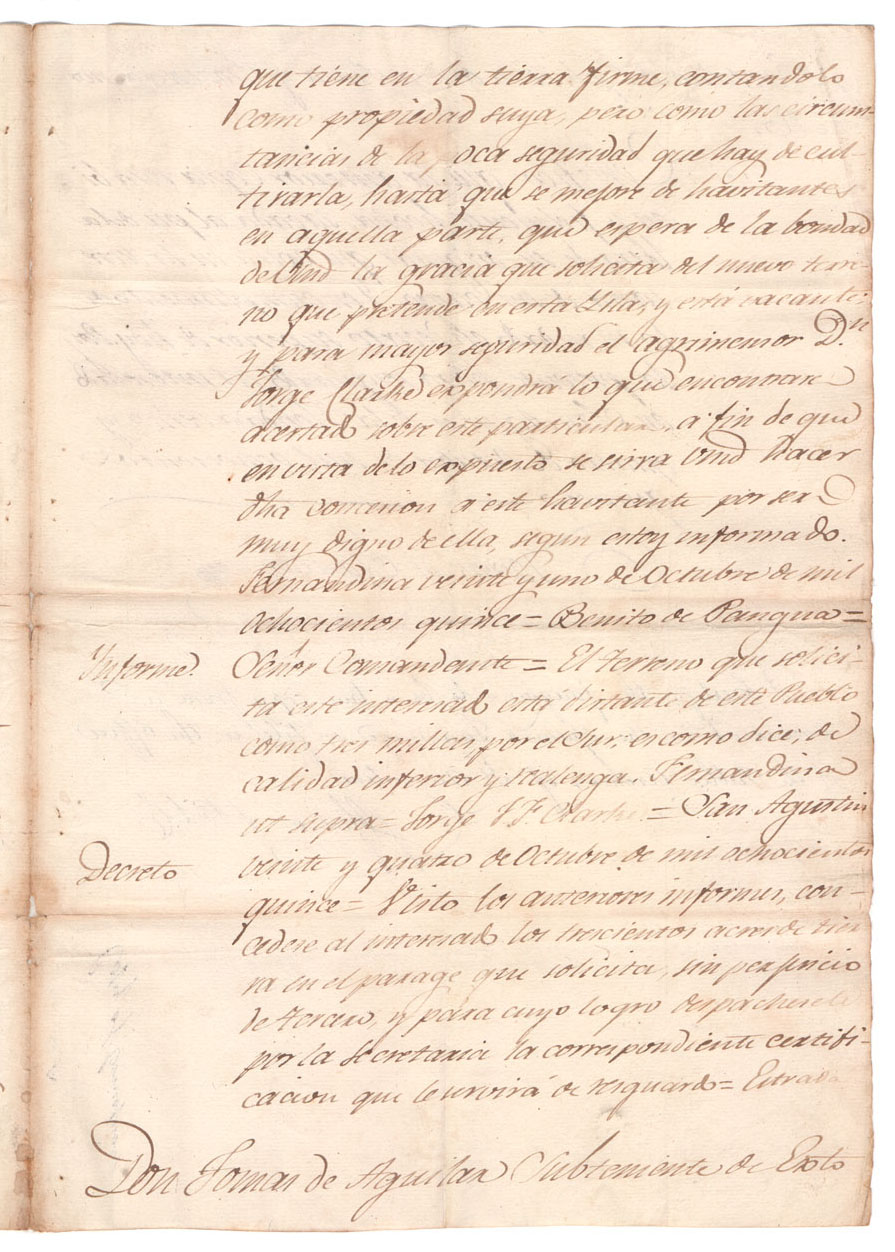 que tiene en la tierra firme, contandolo
como propiedad suya, pero como las circuns-
tancias de la poca seguridad que hay de cul-
tivarla, hasta que se mejore de havitantes
en aquella parte, que espera de la bondad
de Vmd la gracia que solicita del nuevo terre-
no que pretende en esta Ysla, y está vacante;
y para mayor seguridad el agrimensor Dn
Jorge Clarke expondrá lo que encontrare
acertado sobre este particular, a fin de que
en vista de lo expuesto se sirva Vmd hacer
dha concesion a este havitante por ser
muy digno de ella, segun estoy informado.
Fernandina veinte y uno de Octubre de mil
ochocientos quince = Benito de Pangua =
Informe. Señor Comandante = El terreno que solici-
ta este interesado esta distante de este Pueblo
como tres millas, por el Sur, es como dice, de
calidad inferior y realenga. Fernandina
ut supra = Jorge J. F. Clarke = San Agustin
Decreto veinte y quatro de Octubre de mil ochocientos
quince = Visto los anteriores informes, con-
cedese al interesado los trescientos acres de tier-
ra en el parage que solicita, sin perjuicio
de tercero, y para cuyo logro despachesele
por la secretaria la correspondiente certifi-
cacion que le servirá de resguardo = Estrada
Don Tomas de Aguilar Subteniente de Exto